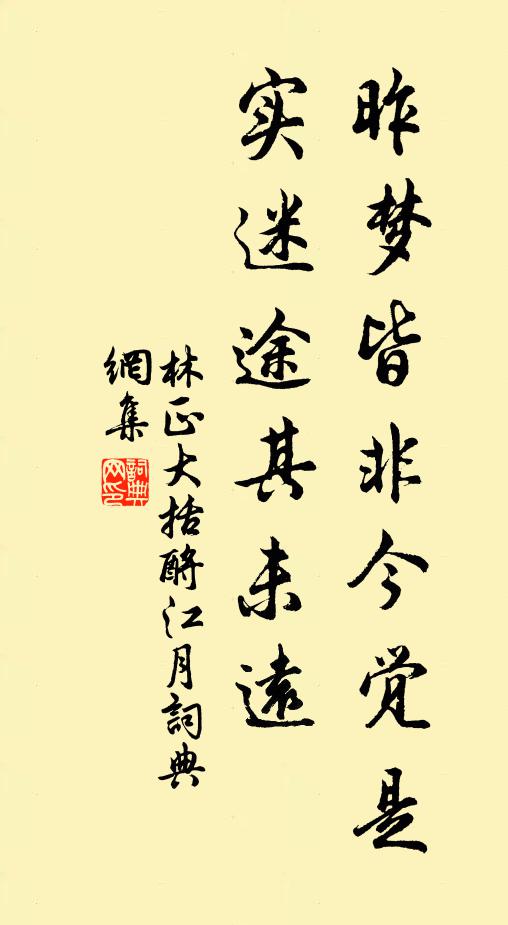 昨梦皆非今觉是
实迷途其未遠
林正大括酹江月詞典
網集
詞典網印